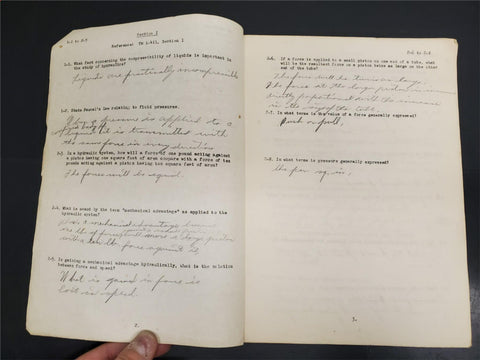 2-1 to 2-5
Section I
Reference: TM 1-411, Section I
2-1. What fact concerning the compressibility of liquids is important in
the study of hydraulics?
Liquids are practically incompressible
2-2. State Pascal's Law relating to fluid pressures.
a pressure is applied to a
it is transmitted with
the same force in every direction
2-3. In a hydraulic system, how will a force of one pound acting against
a piston having one square foot of area compare with a force of ten
pounds acting against a piston having ten square feet of area?
The forces will be equal.
2-4. What is meant by the term "mechanical advantage" as applied to the
hydraulic system?
a mechanical advantage
force against it
2-5. In gaining a mechanical advantage hydraulically, what is the relation
between force and speed?
What is gained in force is
lost in speed.
2.
2-6 to 2-8
2-6. If a force is applied to a small piston on one end of a tube, what
will be the resultant force on a piston twice as large on the other
end of the tube?
The force will be twice as large
The force at the larger piston is
directly proportional with the increase
in the size of the tube.
2-7. In what terms is the value of a force generally expressed?
Push or pull.
2-8. In what terms is pressure generally expressed?
lbs per sq. in.
3.